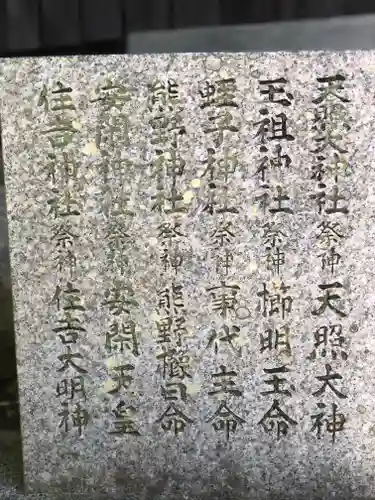 天照大神社 祭神 天照大神
玉祖神社 祭神 櫛明玉命
蛭子神社 祭神 事代主命
熊野神社 祭神 熊野櫲日命
安閑神社 祭神 安閑天皇
住吉神社 祭神 住吉大明神